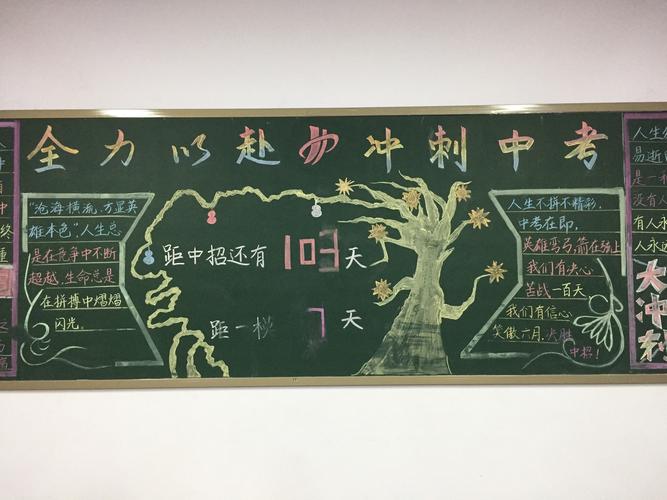 全力以赴 冲刺中考
“沧海横流,方显英
雄本色”,人生总
是在竞争中不断
超越,生命总是
在拼搏中熠熠
闪光。
距中招还有10天
距一模7天
人生不拼不精彩,
中考在即,
英雄弯弓,箭在弦上
我们有决心
苦战一百天
我们有信心
笑傲六月,决胜
中招!
人生
易逝
是一
没有人
有人
人永
大冲刺